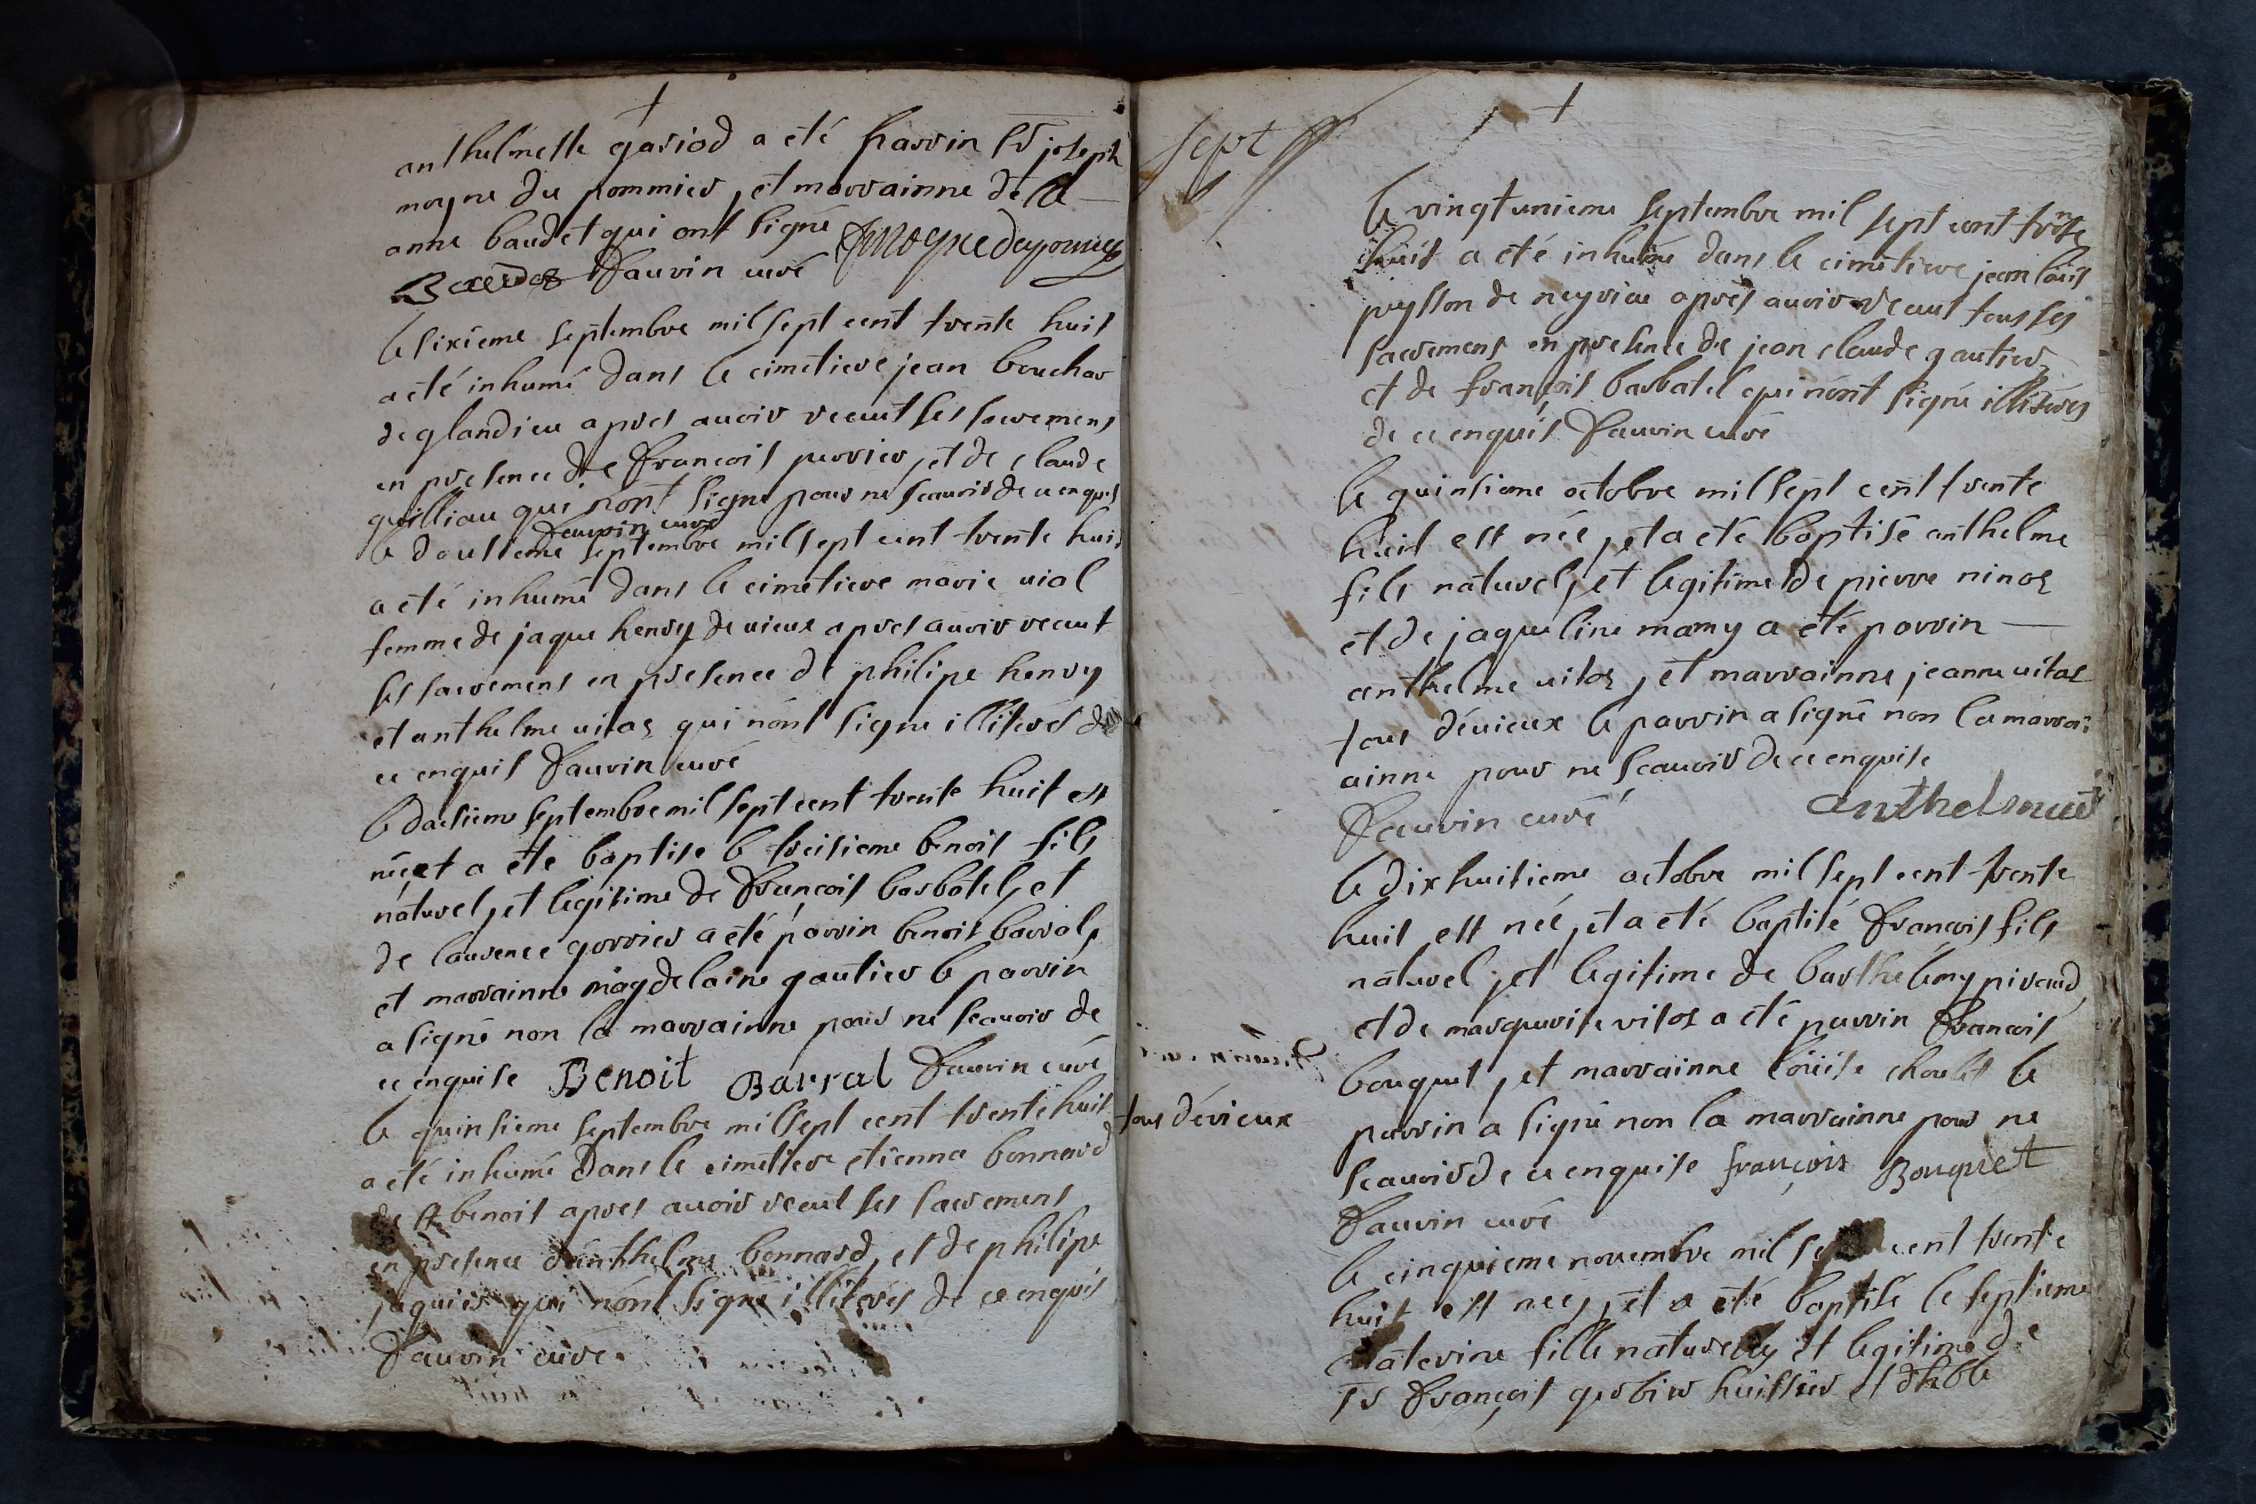 anthelmette gariod a êté parrin sr joseph
moyne du pommier, et marrainne dêlle
anne baudet qui ont signé JMoynedupommier
Baudet Fauvin curé
le sixieme septembre mil sept cent trente huit
a êté inhumé dans le cimêtiere jean bouchar
de glandieu apres auoir receut ses sacremens
en presence de François perrier, et de claude
guilliau qui n'ont signé pour ne scauoir de ce enquis
Fauvin curé
le dousieme septembre mil sept cent trente huit
a êté inhumé dans le cimêtiere marie uial
femme de jaque henry de uieux apres auoir receut
ses sacremens en presence de philipe henry
et anthelme uitoz qui n'ont signe illiterés de
ce enquis Fauvin curé
le dousieme septembre mil sept cent trente huit est
née et a êté baptise le treisieme benoit fils
naturel, et legitime de François barbatel, et
de laurence gorrier a êté parrin benoit barral,
et marrainne magdelaine gautier le parrin
a signé non la marrainne pour ne scauoir de
ce enquise Benoit Barral Fauvin curé
le quinsieme septembre mil sept cent trente huit
a êté inhumé dans le cimêtiere etienna bonnard
de st benoit apres auoir receut ses sacremens
en presence d'anthelme bonnard, et de philipe
jaquier qui n'ont signé illiterés de ce enquis
Fauvin curé
sept
le vingt unieme septembre mil sept cent trente
huit a êté inhumé dans le cimêtiere jean loüis
peysson de neyrieu aprés auoir receut tous ses
sacremens en presence de jean claude gautier
et de françois barbatel qui n'ont signé illiterés
de ce enquis Fauvin curé
le quinsieme octobre mil sept cent trente
huit est née, et a êté baptisé anthelme
fils naturel, et legitime de pierre ninoz
et de jaqueline mamy a êté parrin
anthelme uitoz, et marrainne jeanne uitoz
tous d'éuieux le parrin a signé non la marrai
ainne pour ne scauoir de ce enquise
Fauvin curé anthelme
le dixhuitieme octobre mil sept cent trente
huit est née, et a êté baptisé François fils
naturel, et legitime de barthelemy piraud
et de marguerite vitoz a êté parrin François
bouquet, et marrainne loüise choulet le
tous d'évieux
parrin a signé non la marrainne pour ne
scauoir de ce enquise françois Bouquet
Fauvin curé
le cinquieme nouembre mil sept cent trente
huit est neé, et a êté baptisé le septieme
caterine fille naturelle, et legitime de
sr François gerbier huissier